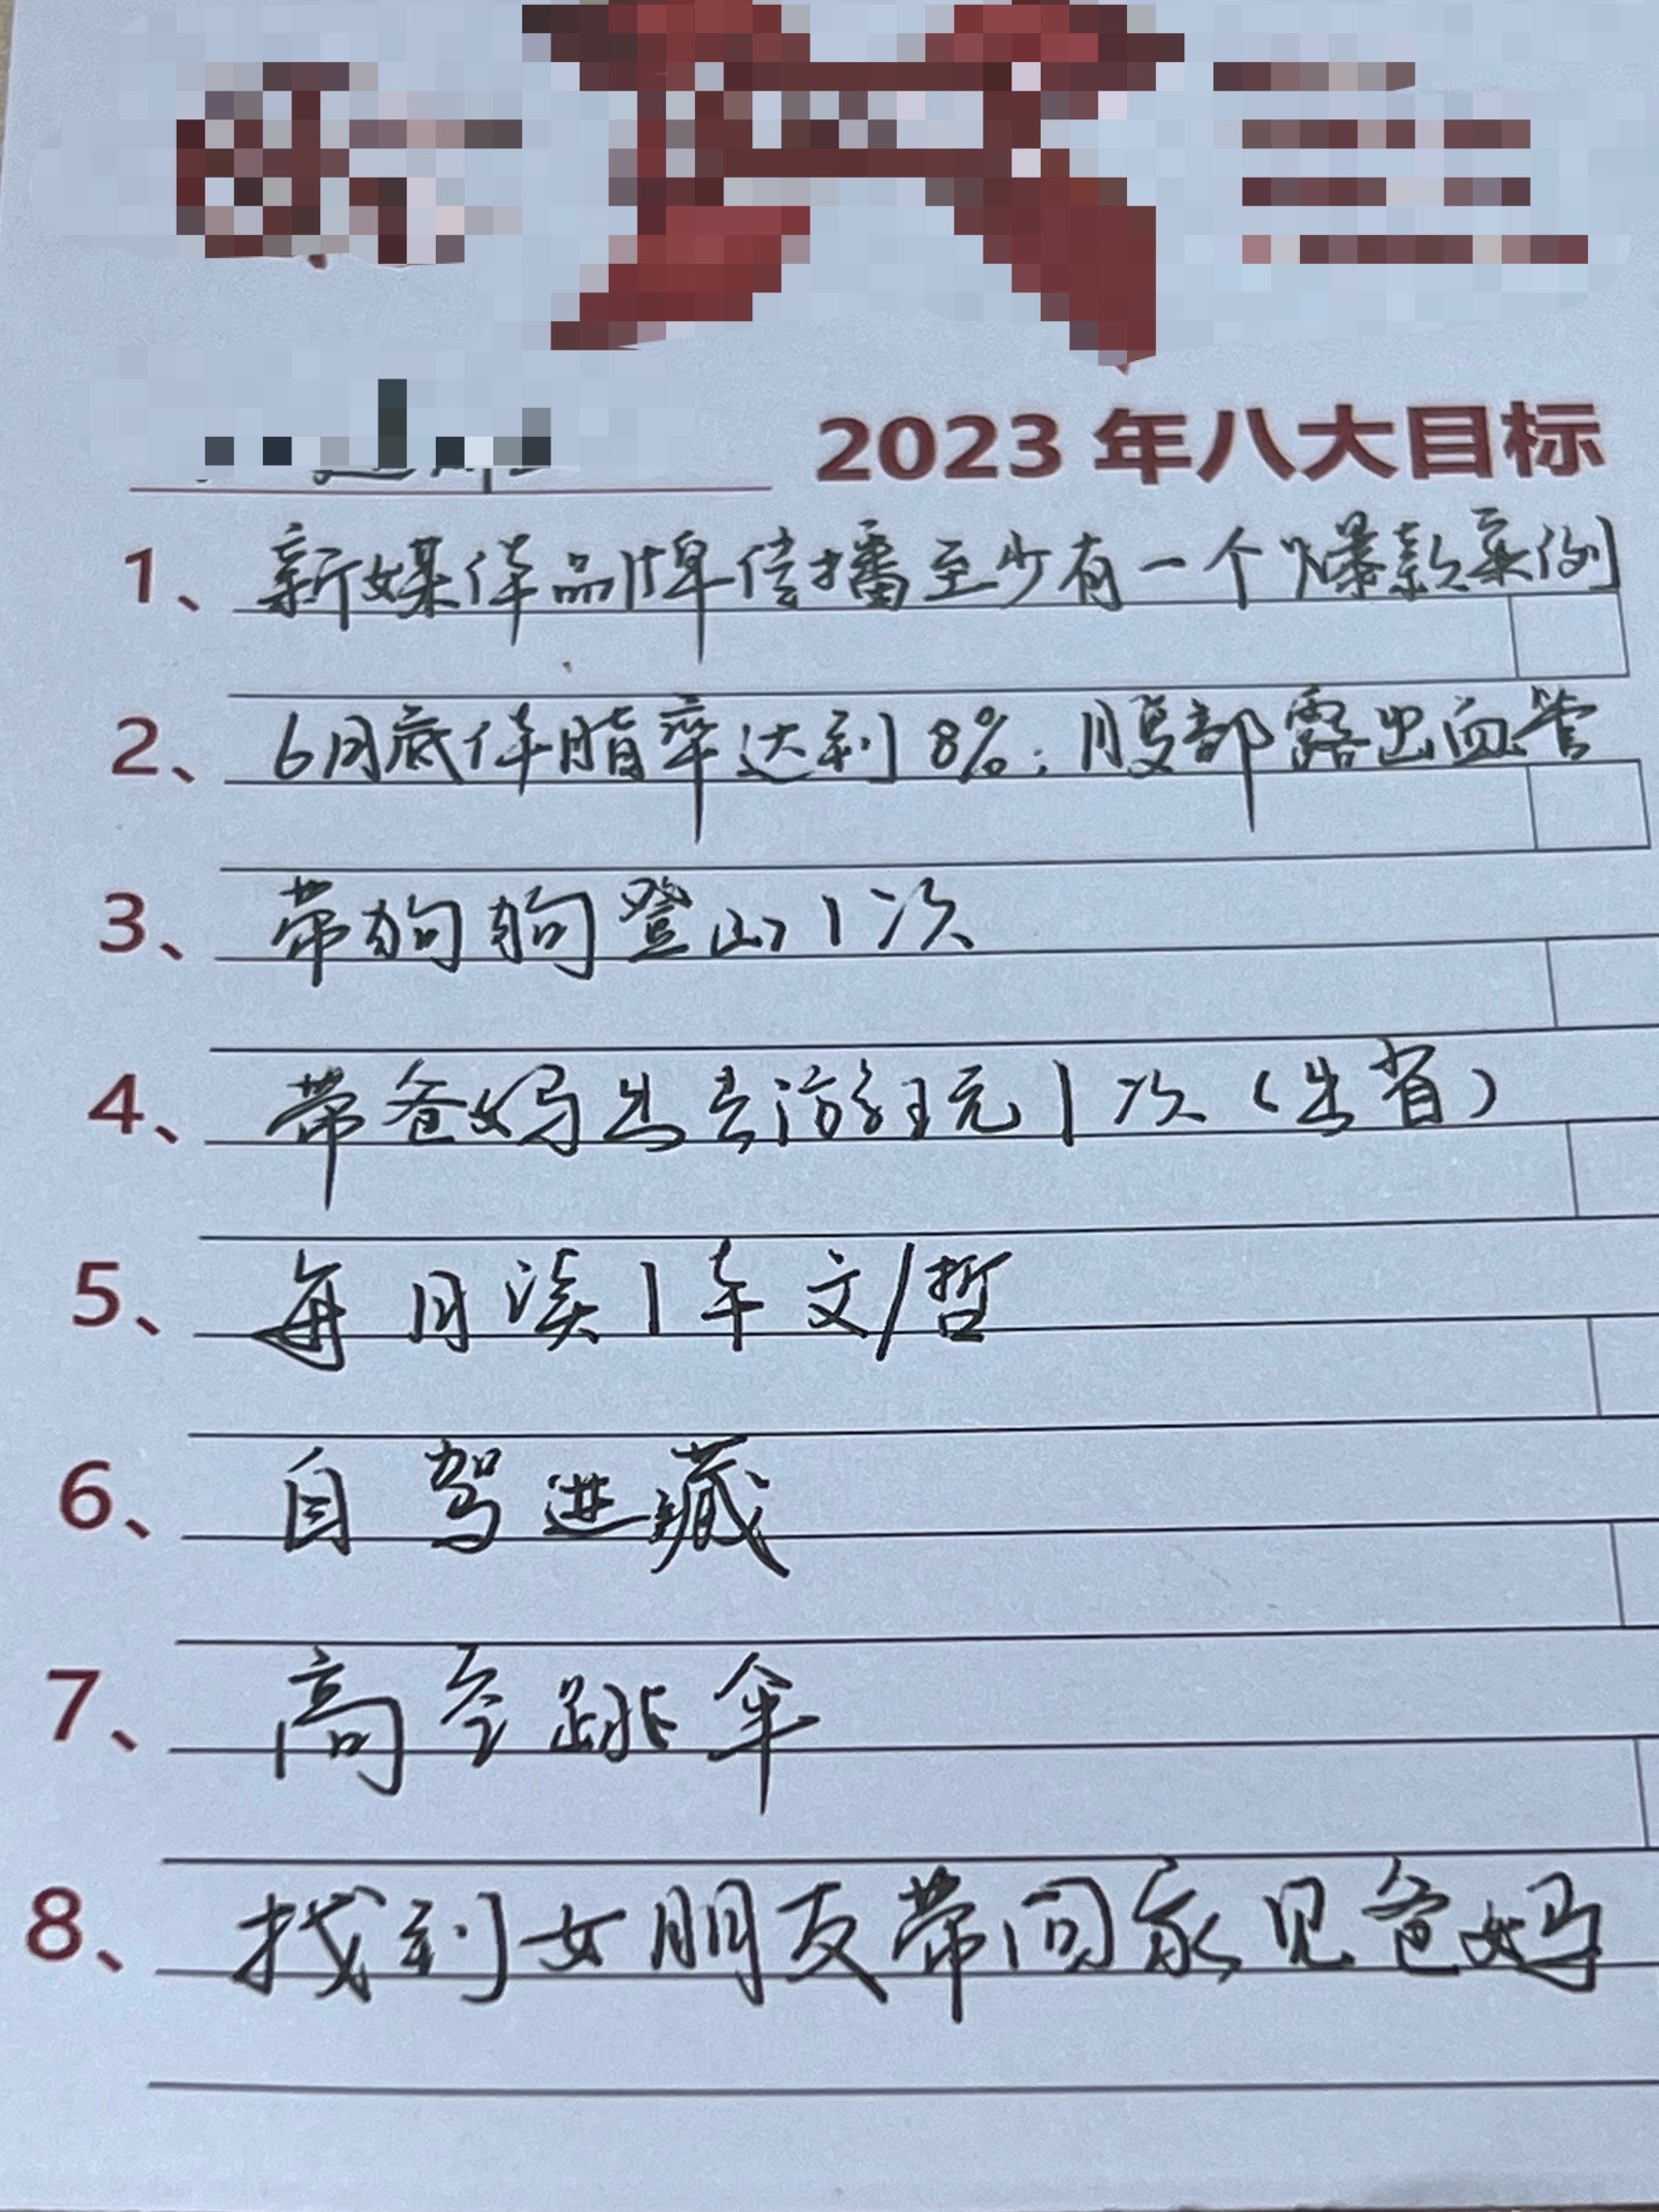 2023年八大目标
1、新媒体品牌传播至少有一个爆款案例
2、6月底体脂率达到8%;腹部露出血管
3、带狗狗登山1次
4、带爸妈出去游玩1次(出省)
5、每月读1本文/哲
6、自驾进藏
7、高空跳伞
8、找到女朋友带回家见爸妈